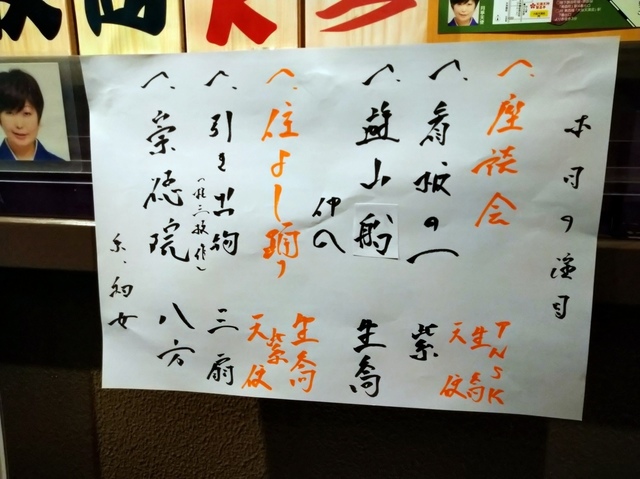 本日の演目
へ、座談会 TNSK 生喬 天使
へ、看板の一 紫
へ、遊山船 生喬
仲入
へ、住よし踊り 生喬 紫 天使
へ、引き出物(桂三枝作) 三扇
へ、崇徳院 八方